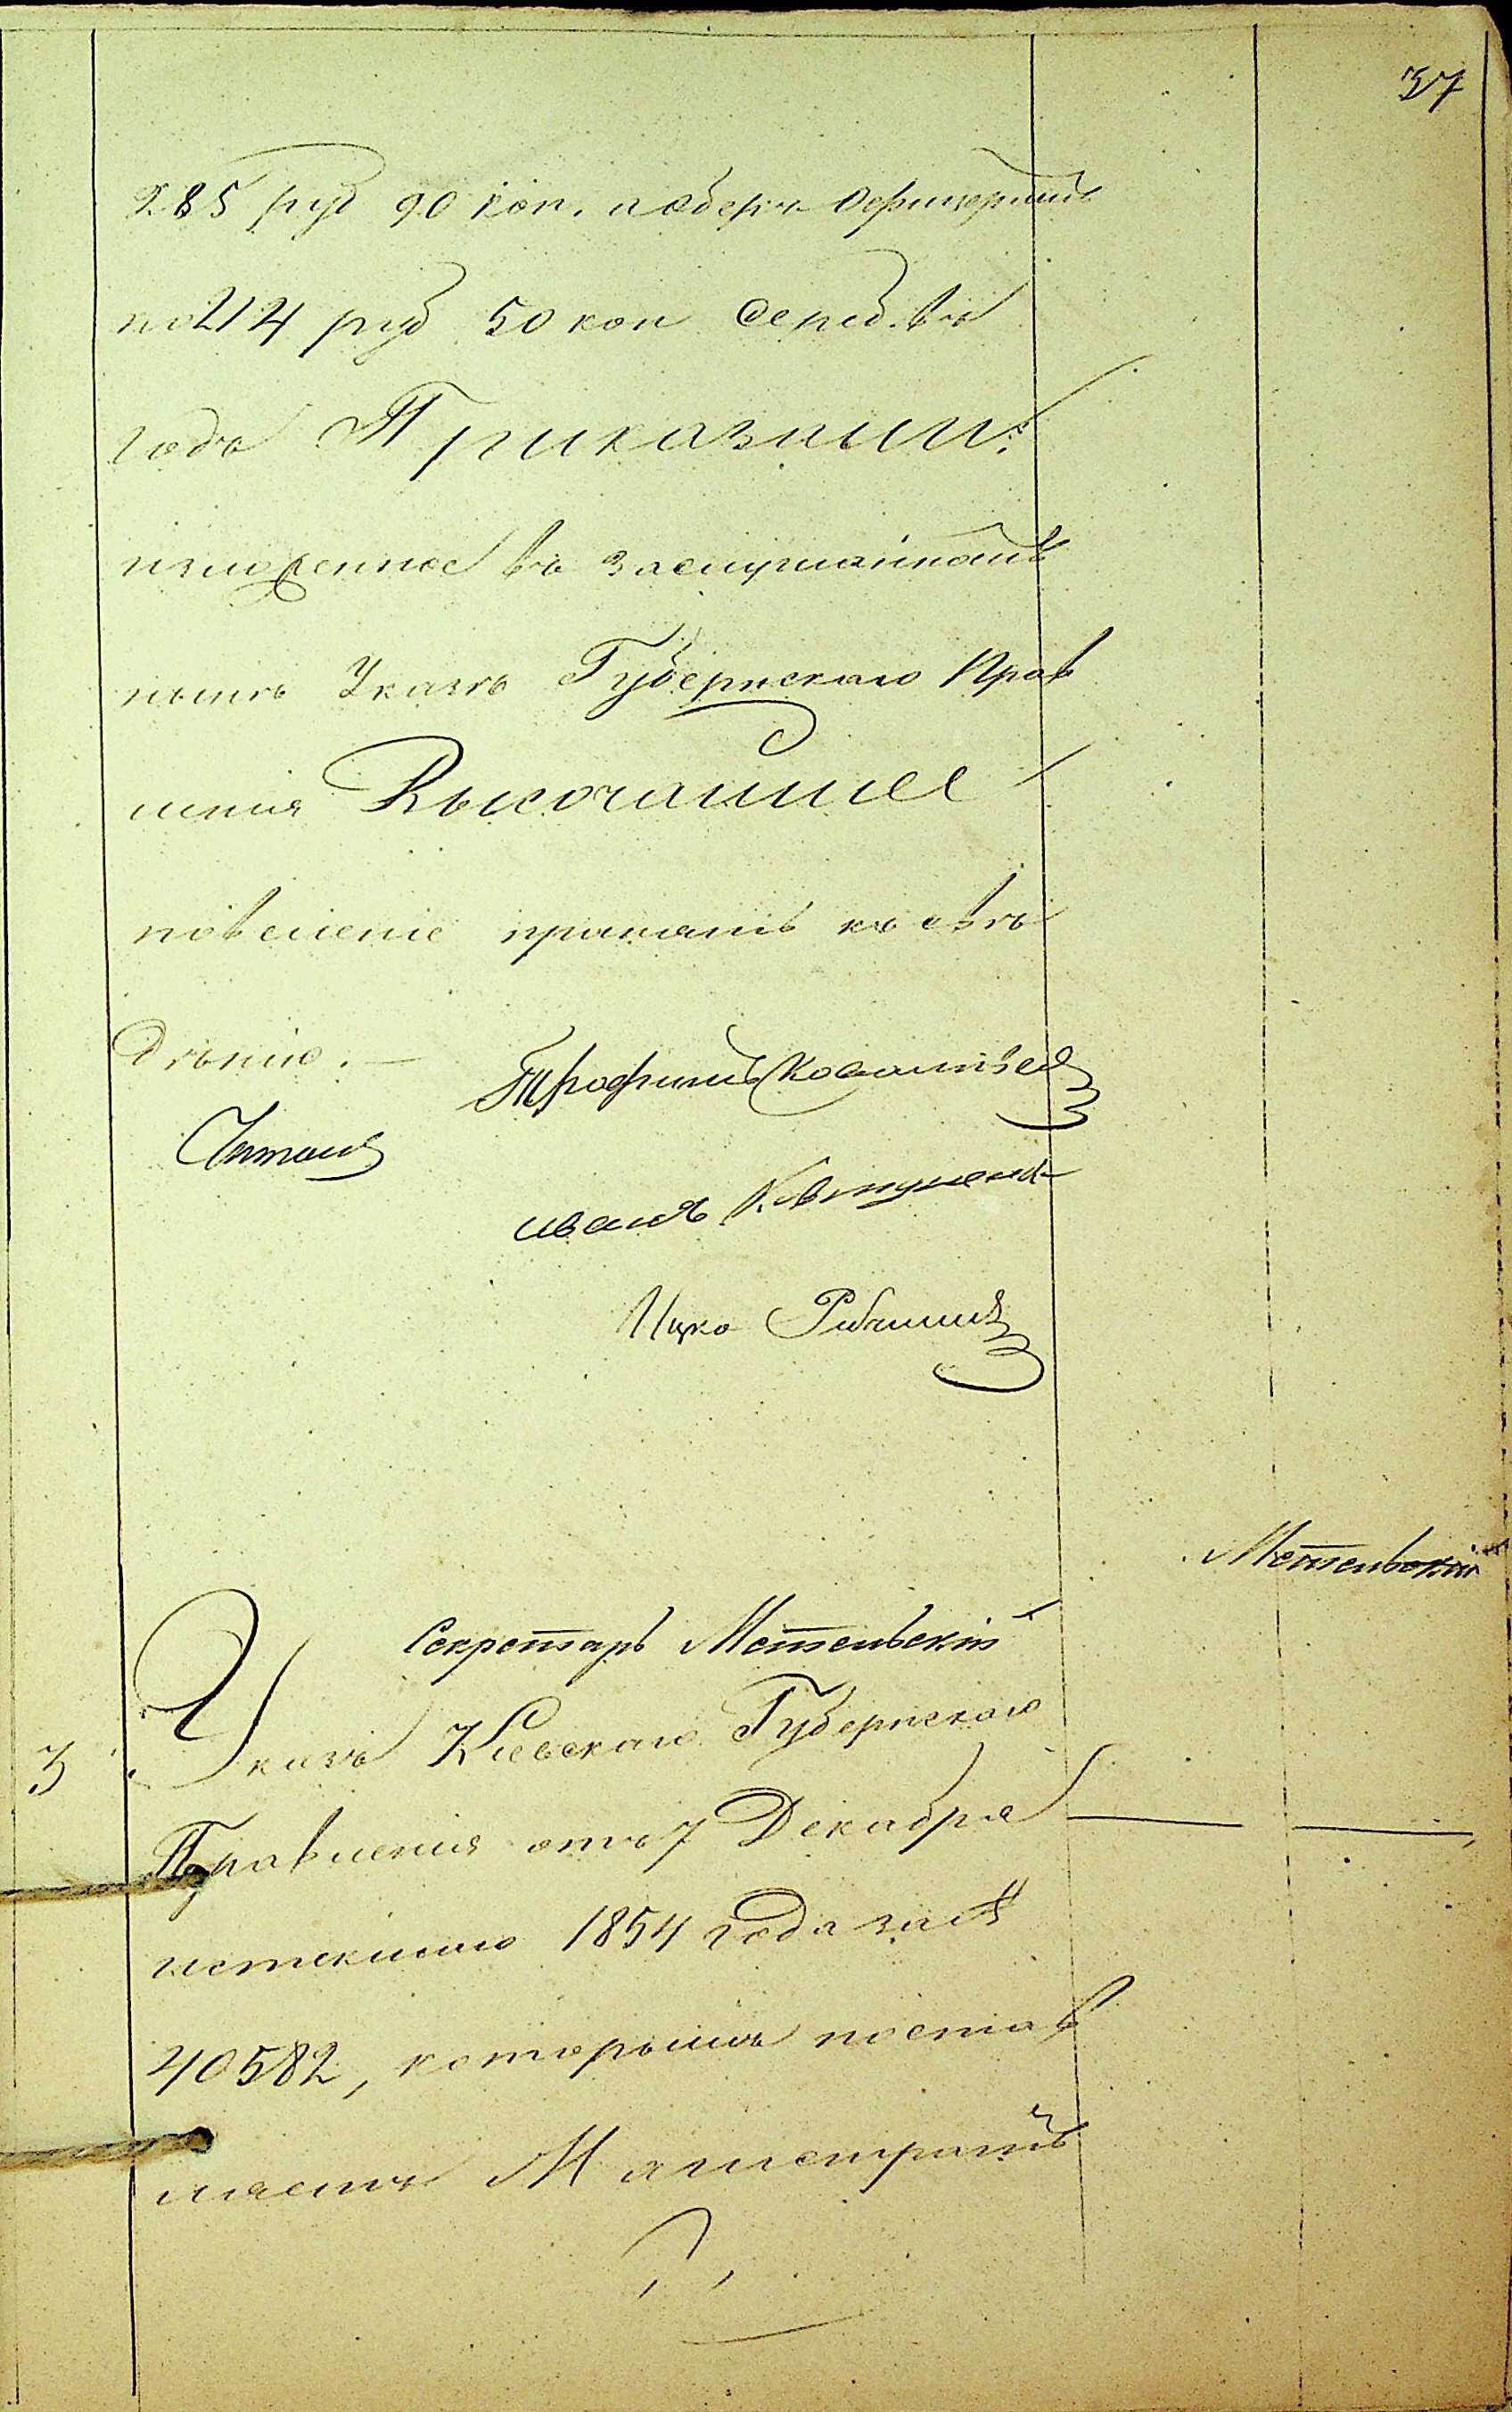 37
285 руб 90 коп. а оберъ офицерамъ
по 214 руб 50 коп Сереб. въ
годъ Приказали:
изложенное въ заслушан
номъ Указѣ Губернскаго Прав
ленія Высочайшее
повеленіе принять къ свѣ
дѣнію. —
Трофимъ
Читалъ
иванъ
Ицко
Метельскій
Секретарь Метельскій
3
Указъ Кіевскаго Губернскаго
Правленія отъ 7 Декабря
истекшаго 1854 года за №
40582, которымъ постав
ляетъ Магистратъ